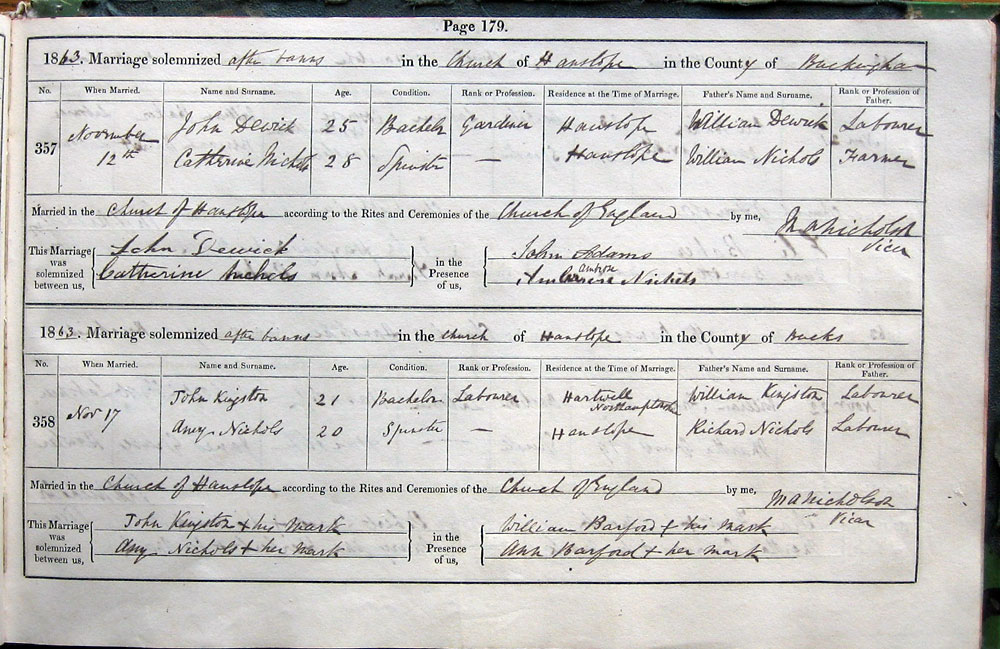 Page 179.
1863. Marriage solemnized after banns in the Church of Hanslope in the County of Buckingham
No. When Married. Name and Surname. Age. Condition. Rank or Profession. Residence at the Time of Marriage. Father's Name and Surname. Rank or Profession of Father.
357 November 12th John Dewick 25 Bachelor Gardiner Hanslope William Dewick Labourer
Catherine Nichols 28 Spinster — Hanslope William Nichols Farmer
Married in the Church of Hanslope according to the Rites and Ceremonies of the Church of England by me, M A Nicholson Vicar
This Marriage was solemnized between us, John Dewick in the Presence of us, John Adams
Catherine Nichols Ambrose Nichols
1863. Marriage solemnized after banns in the Church of Hanslope in the County of Bucks
No. When Married. Name and Surname. Age. Condition. Rank or Profession. Residence at the Time of Marriage. Father's Name and Surname. Rank or Profession of Father.
358 Nov 17 John Kingston 21 Bachelor Labourer Hartwell William Kingston Labourer
Amy Nichols 20 Spinster — Hanslope Richard Nichols Labourer
Married in the Church of Hanslope according to the Rites and Ceremonies of the Church of England by me, M A Nicholson Vicar
This Marriage was solemnized between us, John Kingston + his mark in the Presence of us, William Barford + his mark
Amy Nichols + her mark Ann Barford + her mark